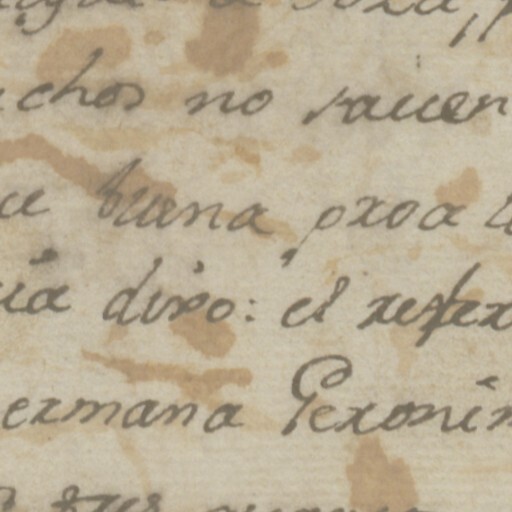 chos no sauen
ue buena proa a
ria dixo: el refer
ermana Geronim